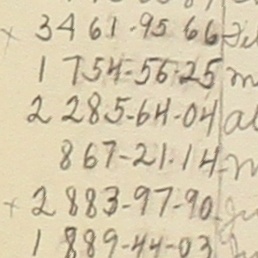 x 3461-95 66
1 754-56-25 m
2 285-64-04
867-21-14
+ 2 883-97-90
1 889-44-03